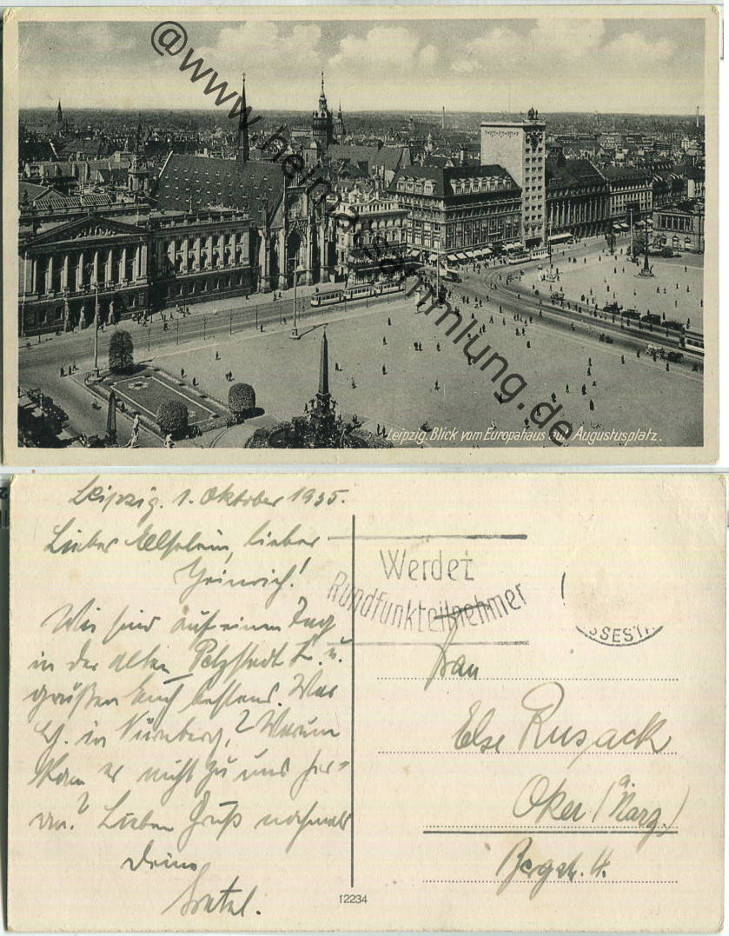 @www.heimatsammlung.de
Leipzig. Blick vom Europahaus auf Augustusplatz.
Leipzig, 1. Oktober 1935.
Lieber, lieber
Heinrich!
Wir sind auf einen Tag
in der alten Pelzstadt L. u.
grüßen Euch bestens. War
in Nürnberg? Warum
kam er nicht zu uns her-
an? Lieben Gruß nochmals
Deine
Gretel.
Werdet
Rundfunkteilnehmer
SSESTA
Frau
Else Rusack
Oker (a. Harz)
Bergstr. 4.
12234